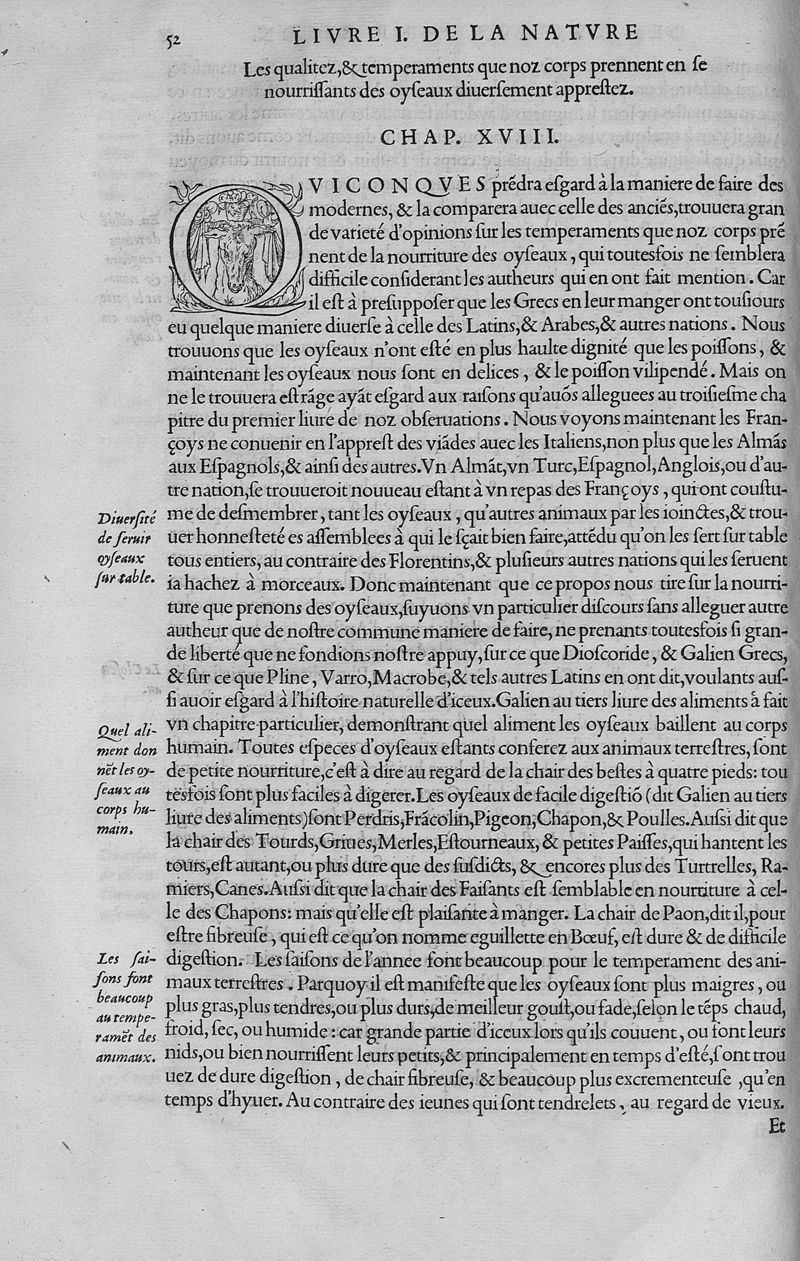 52 LIVRE I. DE LA NATVRE
Les qualitez, & temperaments que noz corps prennent en ſe
nourriſſants des oyſeaux diuerſement appreſtez.
CHAP. XVIII.
QVICONQVES prẽdra eſgard à la maniere de faire des
modernes, & la comparera auec celle des anciẽs, trouuera gran
de varieté d'opinions ſur les temperaments que noz corps prẽ
nent de la nourriture des oyſeaux, qui toutesfois ne ſemblera
difficile conſiderant les autheurs qui en ont fait mention. Car
il eſt à preſuppoſer que les Grecs en leur manger ont touſiours
eu quelque maniere diuerſe à celle des Latins, & Arabes, & autres nations. Nous
trouuons que les oyſeaux n'ont eſté en plus haulte dignité que les poiſſons, &
maintenant les oyſeaux nous ſont en delices, & le poiſſon vilipendé. Mais on
ne le trouuera eſtrãge ayãt eſgard aux raiſons qu'auõs alleguees au troiſieſme cha
pitre du premier liure de noz obſeruations. Nous voyons maintenant les Fran-
çoys ne conuenir en l'appreſt des viãdes auec les Italiens, non plus que les Almãs
aux Eſpagnols, & ainſi des autres. Vn Almãt, vn Turc, Eſpagnol, Anglois, ou d'au-
tre nation, ſe trouueroit nouueau eſtant à vn repas des Françoys, qui ont couſtu-
me de deſmembrer, tant les oyſeaux, qu'autres animaux par les ioinctes, & trou-
uer honneſteté es aſſemblees à qui le ſçait bien faire, attẽdu qu'on les ſert ſur table
tous entiers, au contraire des Florentins, & pluſieurs autres nations qui les ſeruent
ia hachez à morceaux. Donc maintenant que ce propos nous tire ſur la nourri-
ture que prenons des oyſeaux, ſuyuons vn particulier diſcours ſans alleguer autre
autheur que de noſtre commune maniere de faire, ne prenants toutesfois ſi gran-
de liberté que ne fondions noſtre appuy, ſur ce que Dioſcoride, & Galien Grecs,
& ſur ce que Pline, Varro, Macrobe, & tels autres Latins en ont dit, voulants auſ-
ſi auoir eſgard à l'hiſtoire naturelle d'iceux. Galien au tiers liure des aliments à fait
vn chapitre particulier, demonſtrant quel aliment les oyſeaux baillent au corps
humain. Toutes eſpeces d'oyſeaux eſtants conferez aux animaux terreſtres, ſont
de petite nourriture, c'eſt à dire au regard de la chair des beſtes à quatre pieds: tou
tesfois ſont plus faciles à digerer. Les oyſeaux de facile digeſtiõ (dit Galien au tiers
liure des aliments) ſont Perdris, Frãcolin, Pigeon, Chapon, & Poulles. Auſsi dit que
la chair des Tourds, Griues, Merles, Eſtourneaux, & petites Paiſſes, qui hantent les
tours, eſt autant, ou plus dure que des ſuſdicts, & encores plus des Turtrelles, Ra-
miers, Canes. Auſsi dit que la chair des Faiſants eſt ſemblable en nourriture à cel-
le des Chapons: mais qu'elle eſt plaiſante à manger. La chair de Paon, dit il, pour
eſtre fibreuſe, qui eſt ce qu'on nomme eguillette en Bœuf, eſt dure & de difficile
digeſtion. Les ſaiſons de l'annee font beaucoup pour le temperament des ani-
maux terreſtres. Parquoy il eſt manifeſte que les oyſeaux ſont plus maigres, ou
plus gras, plus tendres, ou plus durs, de meilleur gouſt, ou fade, ſelon le tẽps chaud,
froid, ſec, ou humide: car grande partie d'iceux lors qu'ils couuent, ou font leurs
nids, ou bien nourriſſent leurs petits, & principalement en temps d'eſté, ſont trou
uez de dure digeſtion, de chair fibreuſe, & beaucoup plus excrementeuſe, qu'en
temps d'hyuer. Au contraire des ieunes qui ſont tendrelets, au regard de vieux.
Et
Diuerſité
de ſeruir
oyſeaux
ſur table.
Quel ali-
ment don
nẽt les oy-
ſeaux au
corps hu-
main.
Les ſai-
ſons font
beaucoup
au tempe-
ramẽt des
animaux.